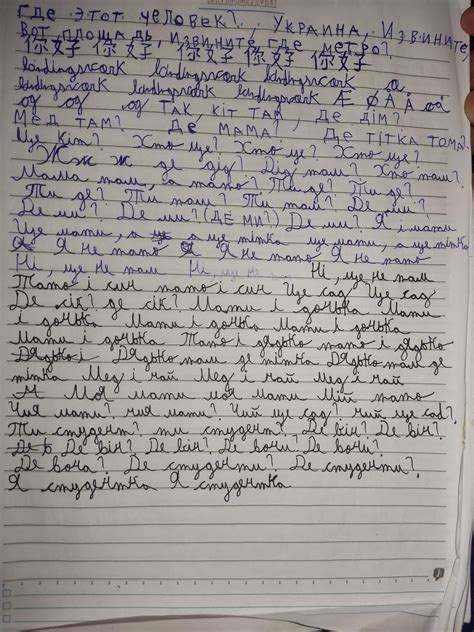 ГДЕ ЭТОТ ЧЕЛОВЕК? УКРАИНА, ИЗВИНИТЕ,
ВОТ ПЛОЩАДЬ, ИЗВИНИТЕ, ГДЕ МЕТРО?
你好 你好 你好 你好 你好
landingsverk landingsverk landingsverk
landingsverk landingsverk landingsverk Æ Ø Å Å øå
og og og ТАК, КІТ ТАМ, ДЕ ДІМ?
МЕД ТАМ? ДЕ МАМА? ДЕ ТІТКА ТОМА?
Це кіт? Хто це? Хто це? Хто це?
Ж ж ж де дід? Дід там? Хто там?
Мама там, а тато? Ти де? Ти де?
Ти де? Ти там? Ти там? Де ми?
Де ми? Де ми? (ДЕ МИ?) Де ми? Я і мати
Це мати, а це а це тітка це мати, а це тітка
Я Я не тато Я Я не тато Я не тато
Ні, це не там Ні, це не Ні, це не там
Тато і син тато і син Це сад Це сад
Де сік? де сік? Мати і дочка Мати
і дочка Мати і дочка Мати і дочка
Мати і дочка Тато і дядько тато і дядько
Дядько і Дядько там де тітка Дядько там де
тітка Мед і чай Мед і чай Мед і чай
Ч Моя мати моя мати Мій тато
Чия мати? чия мати? Чий це сад? Чий це сад?
Ти студент? ти студент? Де він? Де він?
Де в Де він? Де він? Де вони? Де вони?
Де вона? Де студенти? Де студенти?
Я студентка Я студентка